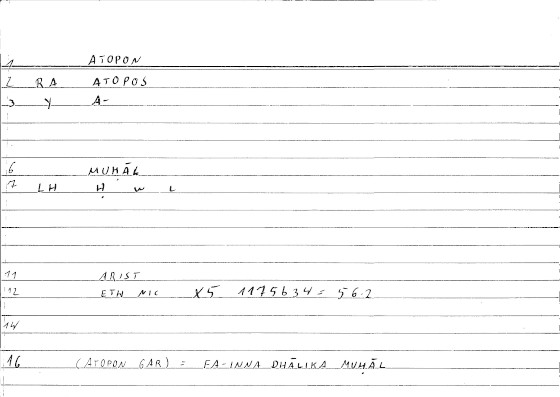 1 ATOPON
2 RA ATOPOS
3 Y A-
6 MUḤĀL
7 LH Ḥ W L
11 ARIST
12 ETH NIC X5 1175b34 = 56.2
14
16 (ATOPON GAR) = FA-INNA DHĀLIKA MUḤĀL